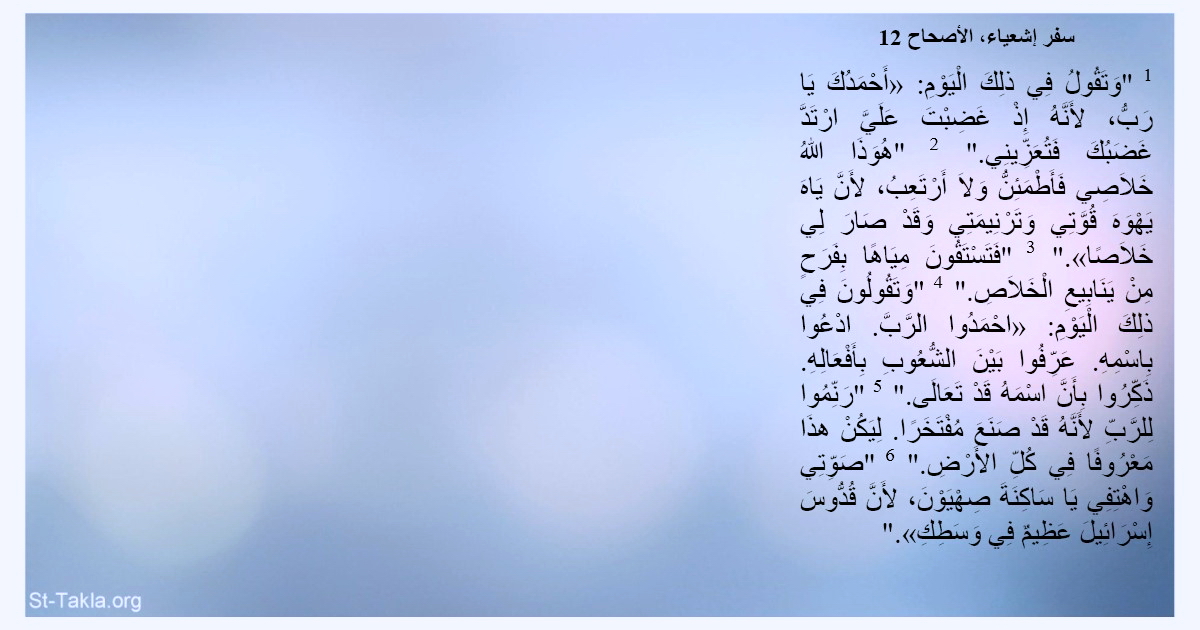 سفر إشعياء، الأصحاح 12
1 "وَتَقُولُ فِي ذلِكَ الْيَوْمِ: «أَحْمَدُكَ يَا
رَبُّ، لأَنَّهُ إِذْ غَضِبْتَ عَلَيَّ ارْتَدَّ
غَضَبُكَ فَتُعَزِّينِي." 2 "هُوَذَا اللهُ
خَلاَصِي فَأَطْمَئِنُّ وَلاَ أَرْتَعِبُ، لأَنَّ يَاهَ
يَهْوَهَ قُوَّتِي وَتَرْنِيمَتِي وَقَدْ صَارَ لِي
خَلاَصًا»." 3 "فَتَسْتَقُونَ مِيَاهًا بِفَرَحٍ
مِنْ يَنَابِيعِ الْخَلاَصِ." 4 "وَتَقُولُونَ فِي
ذلِكَ الْيَوْمِ: «احْمَدُوا الرَّبَّ. ادْعُوا
بِاسْمِهِ. عَرِّفُوا بَيْنَ الشُّعُوبِ بِأَفْعَالِهِ.
ذَكِّرُوا بِأَنَّ اسْمَهُ قَدْ تَعَالَى." 5 "رَنِّمُوا
لِلرَّبِّ لأَنَّهُ قَدْ صَنَعَ مُفْتَخَرًا. لِيَكُنْ هذَا
مَعْرُوفًا فِي كُلِّ الأَرْضِ." 6 "صَوِّتِي
وَاهْتِفِي يَا سَاكِنَةَ صِهْيَوْنَ، لأَنَّ قُدُّوسَ
إِسْرَائِيلَ عَظِيمٌ فِي وَسَطِكِ»."
St-Takla.org